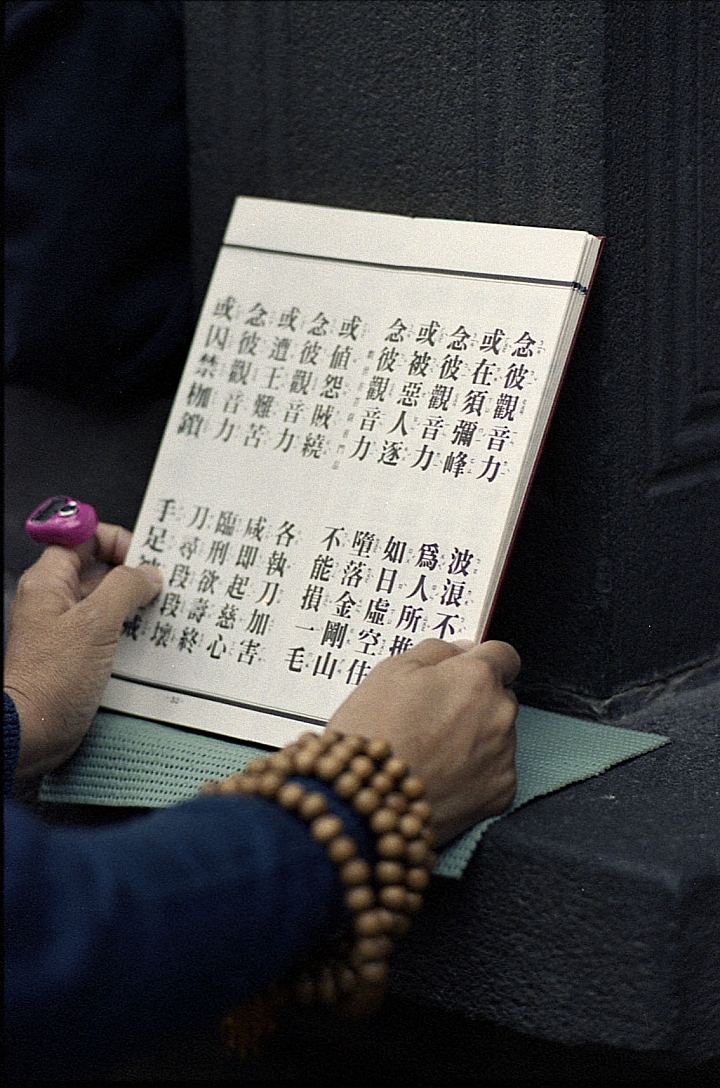 念彼觀音力 波浪不
或在須彌峰 爲人所推
念彼觀音力 如日虛空住
或被惡人逐 墮落金剛山
念彼觀音力 不能損一毛
或值怨賊繞 各執刀加害
念彼觀音力 咸即起慈心
或遭王難苦 臨刑欲壽終
念彼觀音力 刀尋段段壞
或囚禁枷鎖 手足被
-32-